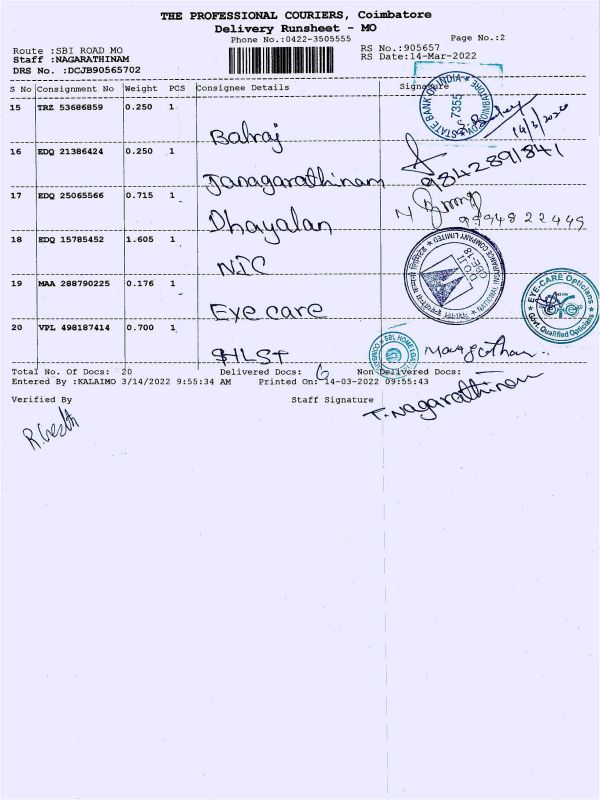 THE PROFESSIONAL COURIERS, Coimbatore
Delivery Runsheet - MO
Phone No.:0422-3505555
Page No.:2
Route :SBI ROAD MO
RS No.:905657
Staff :NAGARATHINAM
RS Date:14-Mar-2022
DRS No. :DCJB90565702
S No Consignment No Weight PCS Consignee Details Signature
15 TRZ 53686859 0.250 1
Balraj
STATE BANK OF INDIA
7355
14/3/2022
16 EDQ 21386424 0.250 1
Janagarathinam 9842891841
17 EDQ 25065566 0.715 1
Dhayalan 9994822449
18 EDQ 15785452 1.605 1
NIC
INSURANCE COMPANY LIMITED
19 MAA 288790225 0.176 1
Eye care
EYE-CARE Opticians
Govt. Qualified Opticians
20 VPL 498187414 0.700 1
SHLST
Total No. Of Docs: 20 Delivered Docs: 6 Non Delivered Docs:
Entered By :KALAIMO 3/14/2022 9:55:34 AM Printed On: 14-03-2022 09:55:43
Verified By Staff Signature
T. Nagarathinam